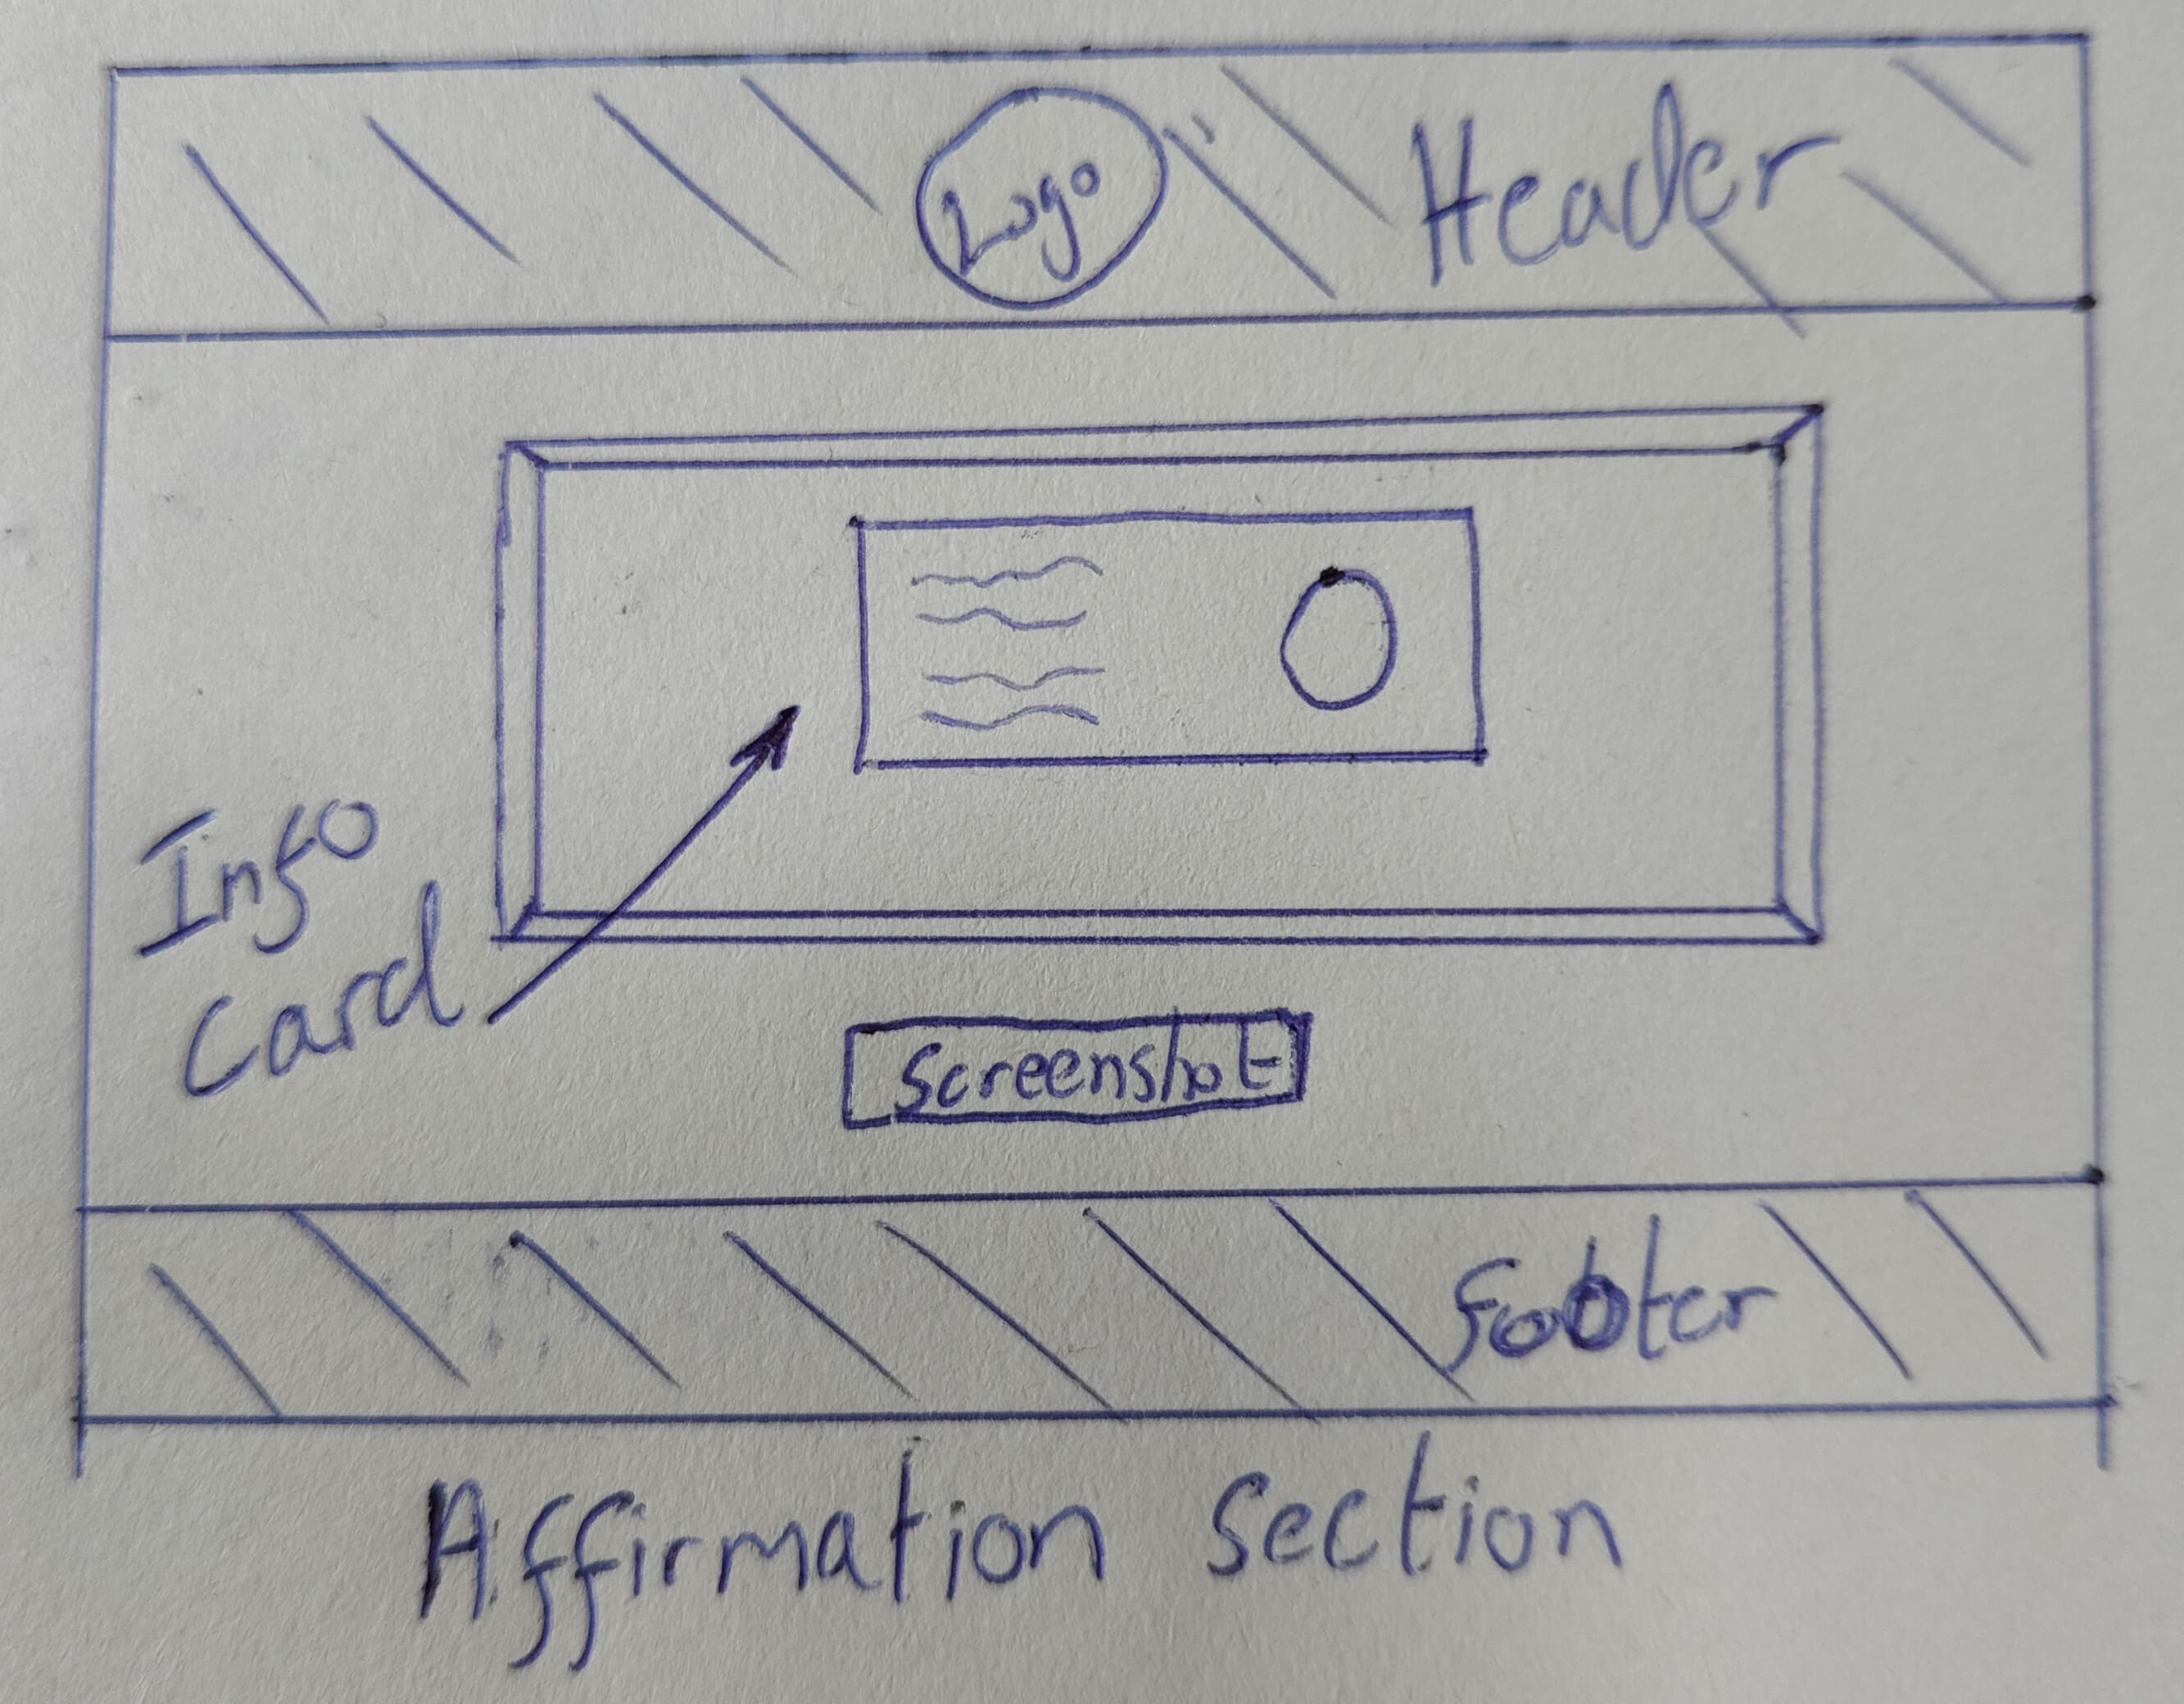 Logo
Header
Info
Card
Screenshot
footer
Affirmation Section